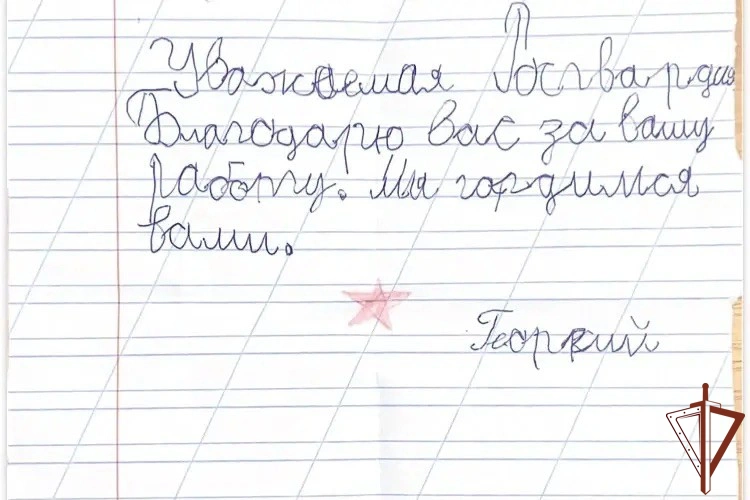 Уважаемая Росгвардия
Благодарю вас за вашу
работу. Мы гордимся
вами.
Георгий